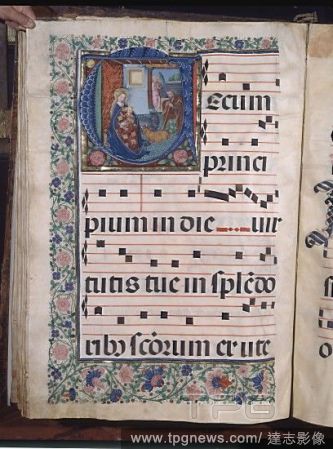 Tecum
princi
pium in die uir
tutis tue in splẽdo
ribꝫ scõrum ex ute
TPG
www.tpgnews.com/ 達志影像